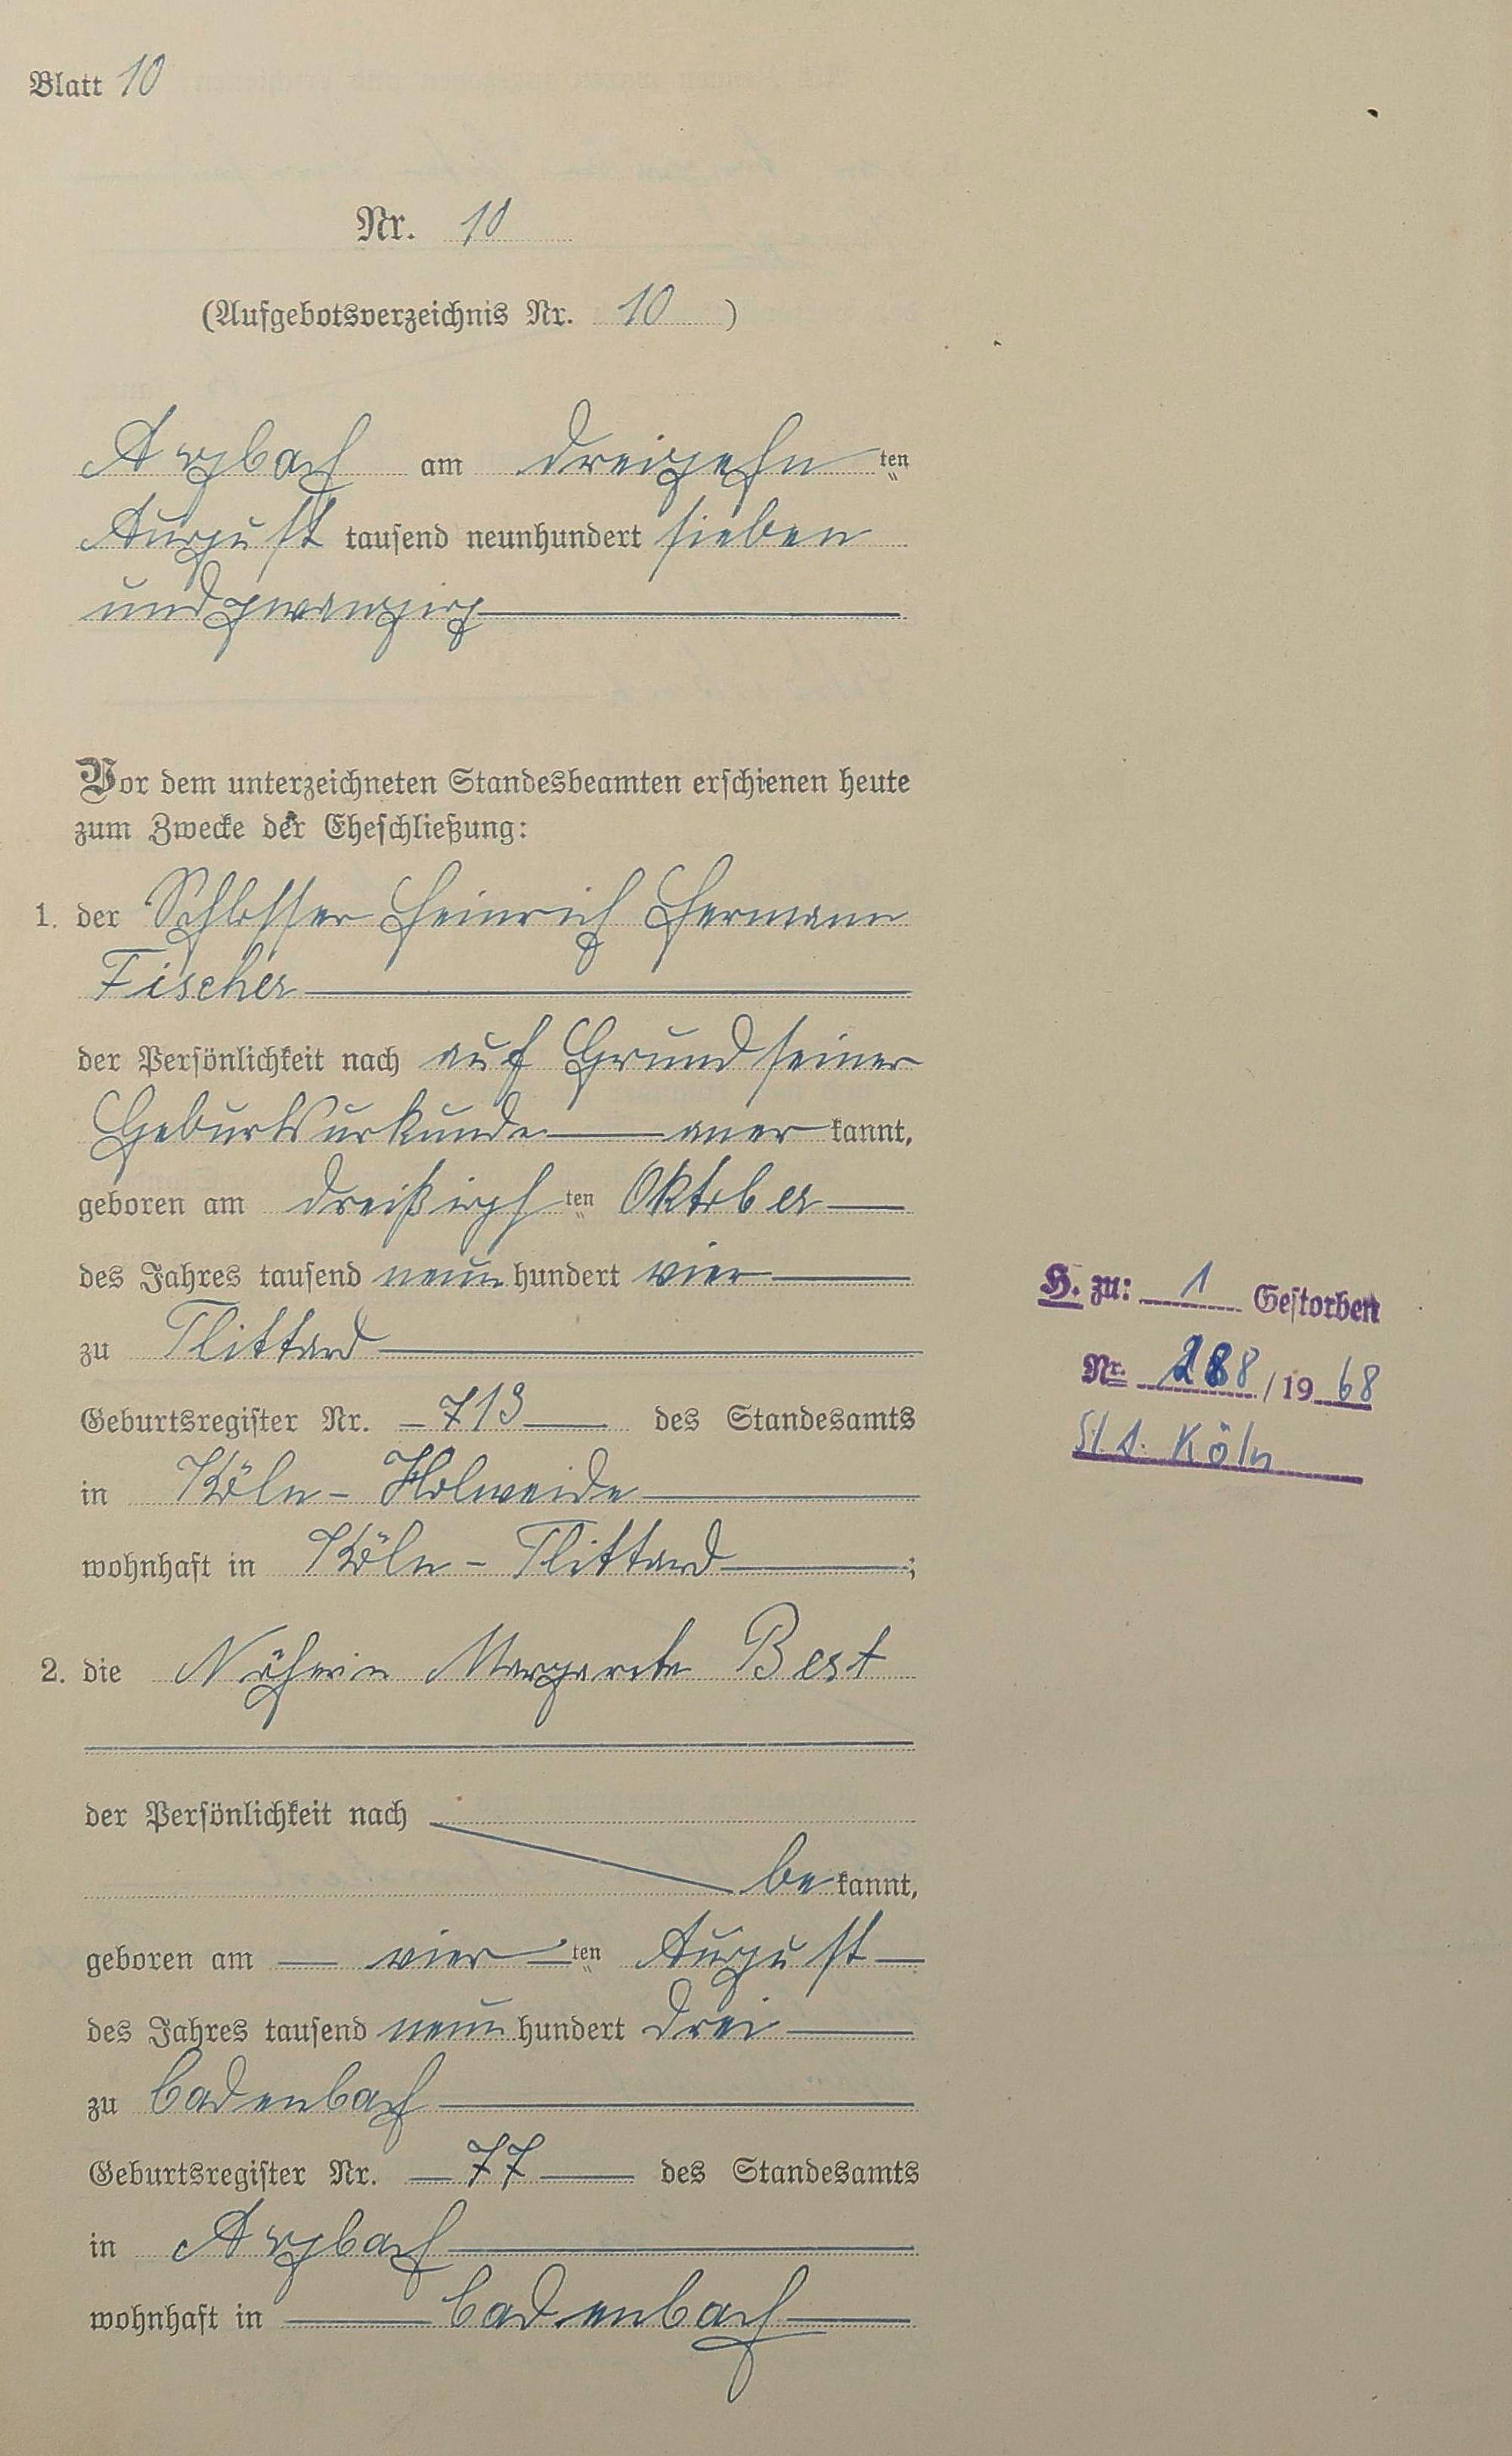 Blatt 10
Nr. 10
(Aufgebotsverzeichnis Nr. 10 )
Arzbach am dreizehn ten
August tausend neunhundert sieben
und zwanzig
Vor dem unterzeichneten Standesbeamten erschienen heute
zum Zwecke der Eheschließung:
1. der Schlosser Heinrich Hermann
Fischer
der Persönlichkeit nach auf Grund seiner
Geburtsurkunde aner kannt,
geboren am dreißigs ten Oktober
des Jahres tausend neun hundert vier
zu Flittard
Geburtsregister Nr. 713 des Standesamts
in Köln - Holweide
wohnhaft in Köln - Flittard ;
2. die Näherin Margarete Best
der Persönlichkeit nach
be kannt,
geboren am vier ten August
des Jahres tausend neun hundert drei
zu Cadenbach
Geburtsregister Nr. 77 des Standesamts
in Arzbach
wohnhaft in Cadenbach
H. zu: 1 Gestorben
Nr. 288 / 19 68
St. A. Köln